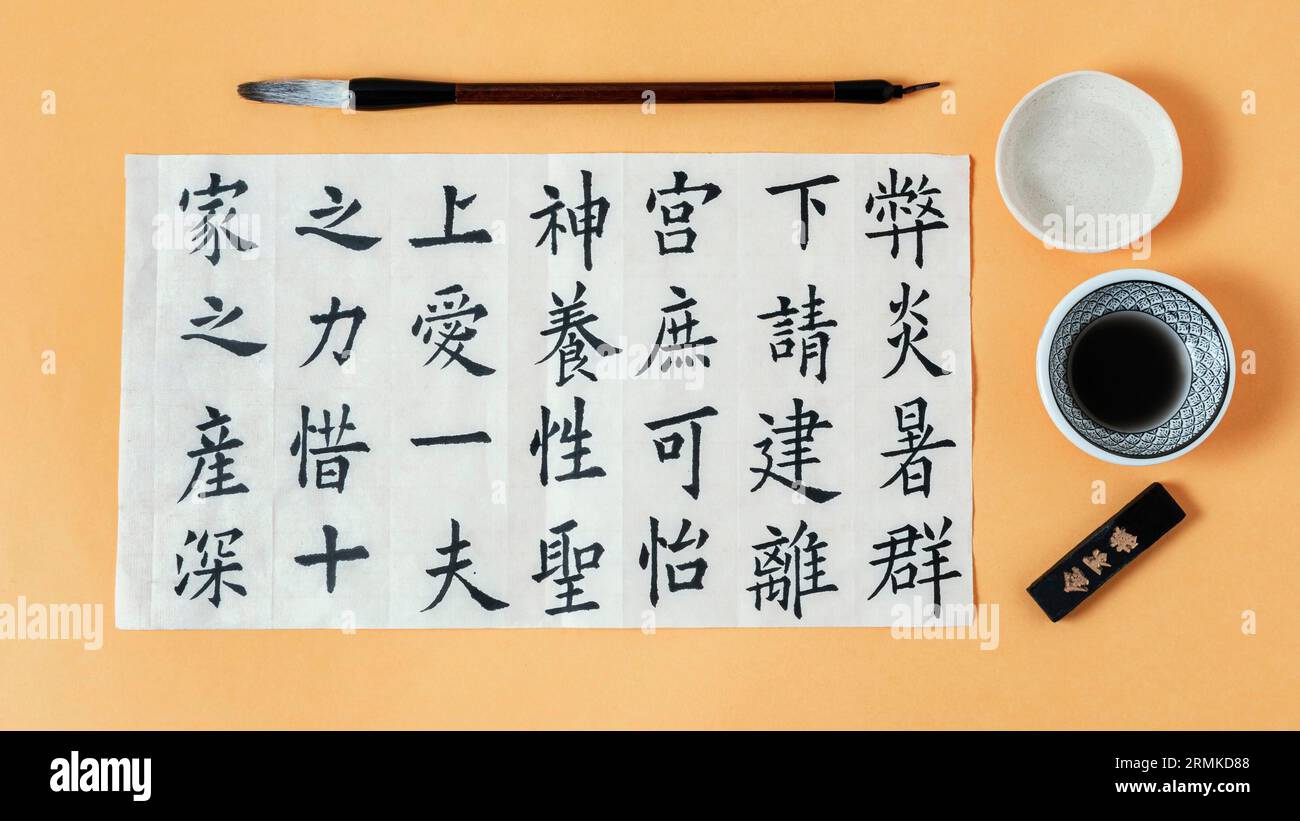 弊炎暑群
下請建離
宮庶可怡
神養性聖
上愛一夫
之力惜十
家之產深
alamy
Image ID: RMKD88
www.alamy.com